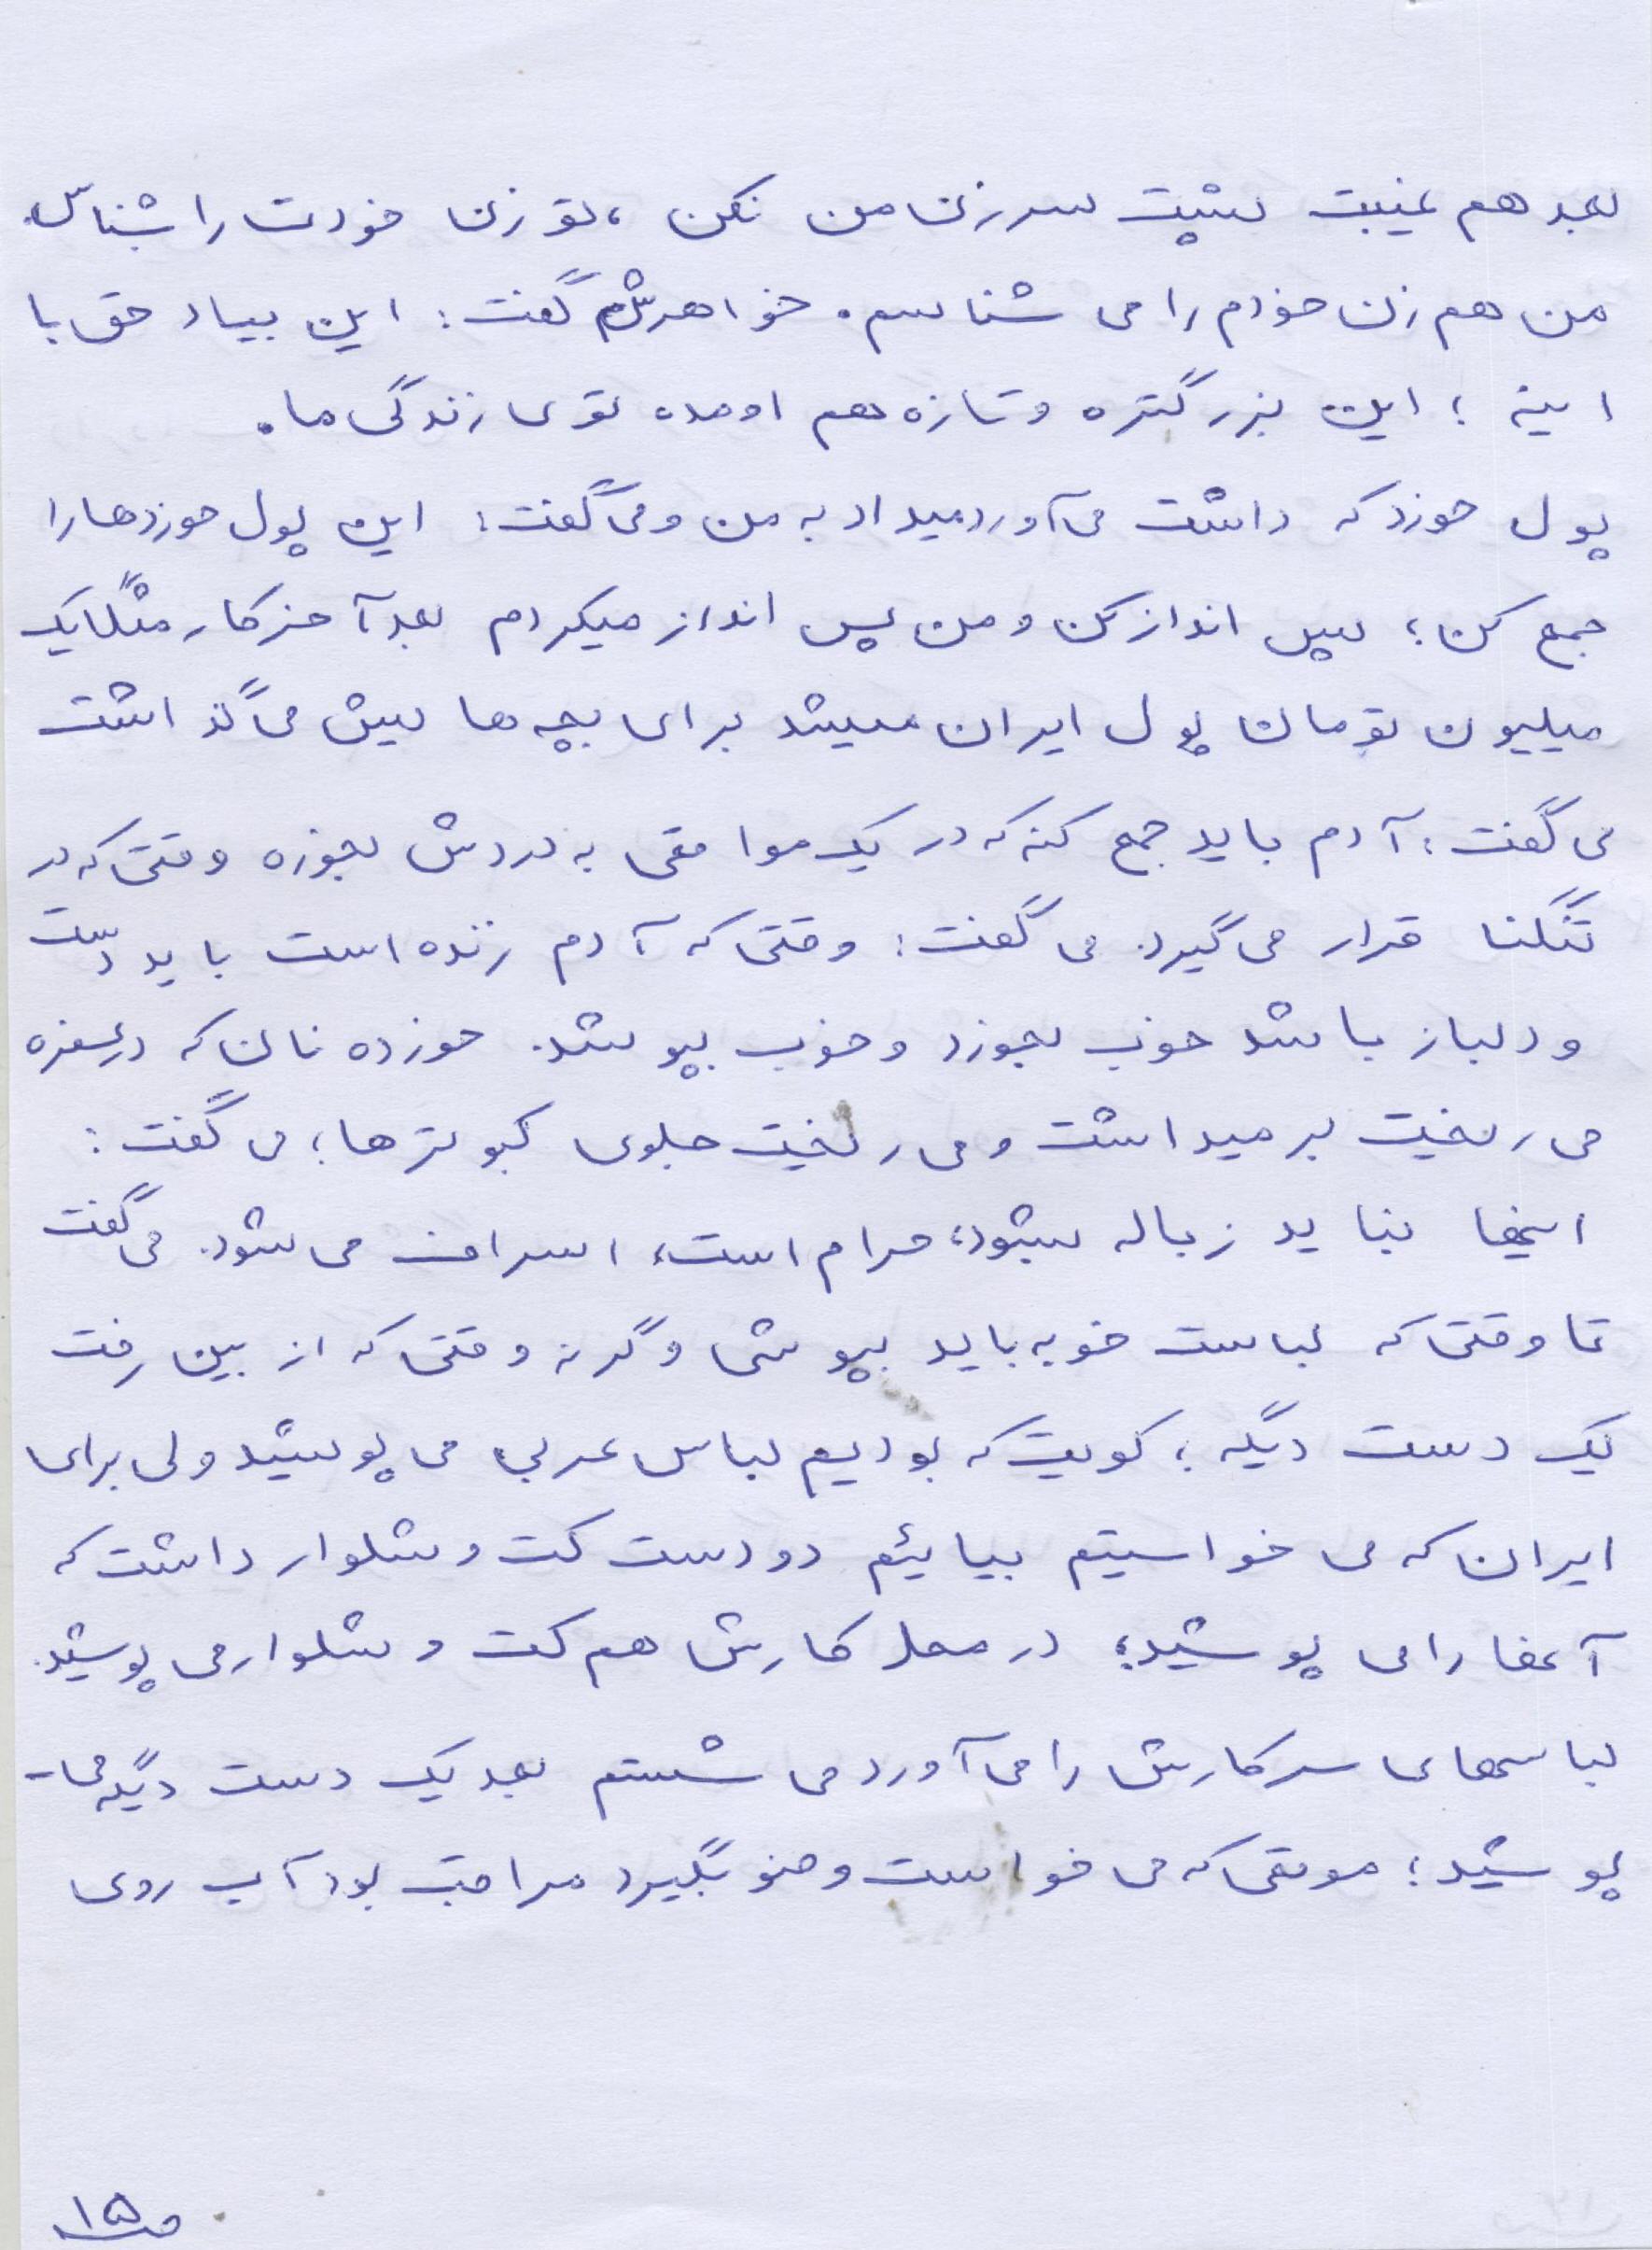 بعد هم غیبت پشت سر زن من نکن، تو زن خودت را بشناس.
من هم زن خودم را می شناسم. خواهرش گفت: این بیاد حق با
اینه؛ این بزرگتره و تازه هم اومده توی زندگی ما.
پول خورد که داشت می آورد میداد به من و می گفت: این پول خوردها را
جمع کن؛ پس انداز کن و من پس انداز میکردم بعد آخر کار مثلاً یک
میلیون تومان پول ایران میشد برای بچه ها پیش می گذاشت
می گفت: آدم باید جمع کنه که در یک مواقعی به دردش بخوره وقتی که در
تنگنا قرار می گیرد. می گفت: وقتی که آدم زنده است باید دست
و دلباز باشد خوب بخورد و خوب بپوشد. خورده نان که در سفره
می ریخت برمیداشت و می ریخت جلوی کبوترها؛ می گفت:
اینها نباید زباله بشود؛ حرام است، اسراف می شود. می گفت
تا وقتی که لباست خوبه باید بپوشی وگرنه وقتی که از بین رفت
یک دست دیگه؛ کویت که بودیم لباس عربی می پوشید ولی برای
ایران که می خواستیم بیائیم دو دست کت و شلوار داشت که
آنها را می پوشید؛ در محل کارش هم کت و شلوار می پوشید.
لباسهای سر کارش را می آورد می شستم بعد یک دست دیگه می-
پوشید؛ موقعی که می خواست وضو بگیرد مراقب بود آب روی
ص۱۵